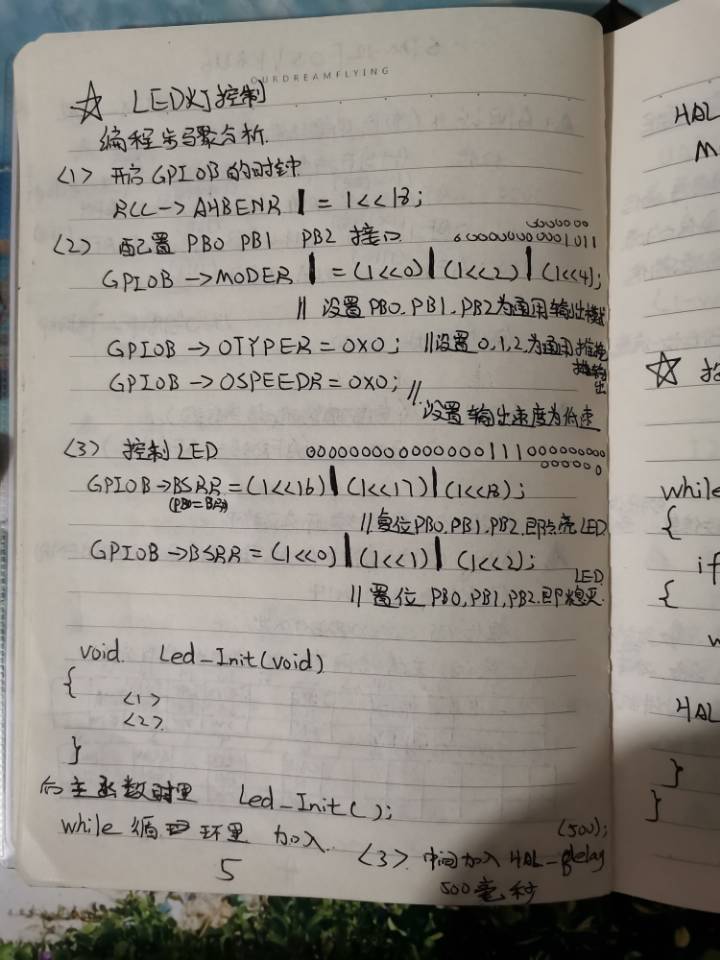 OURDREAMFLYING
☆ LED灯控制
编程步骤分析.
<1> 开启GPIOB的时钟
RCC->AHBENR |= 1<<18;
<2> 配置 PB0 PB1 PB2 接口
GPIOB->MODER |= (1<<0)|(1<<2)|(1<<4);
// 设置PB0.PB1.PB2为通用输出模式
GPIOB->OTYPER=0X0; //设置0,1,2为通用推挽
推挽输出
GPIOB->OSPEEDR=0X0; //
设置输出速度为低速
<3> 控制LED
GPIOB->BSRR=(1<<16)|(1<<17)|(1<<18);
//复位PB0,PB1,PB2,即点亮LED
GPIOB->BSRR=(1<<0)|(1<<1)|(1<<2);
LED
//置位PB0,PB1,PB2.即熄灭.
void Led_Init(void)
{
<1>
<2>
}
向主函数时里 Led_Init();
while 循环里 加入
<3> 中间加入 HAL_Delay
(500);
500毫秒
5
HAL
☆
while
{
if
{
HAL
}
}